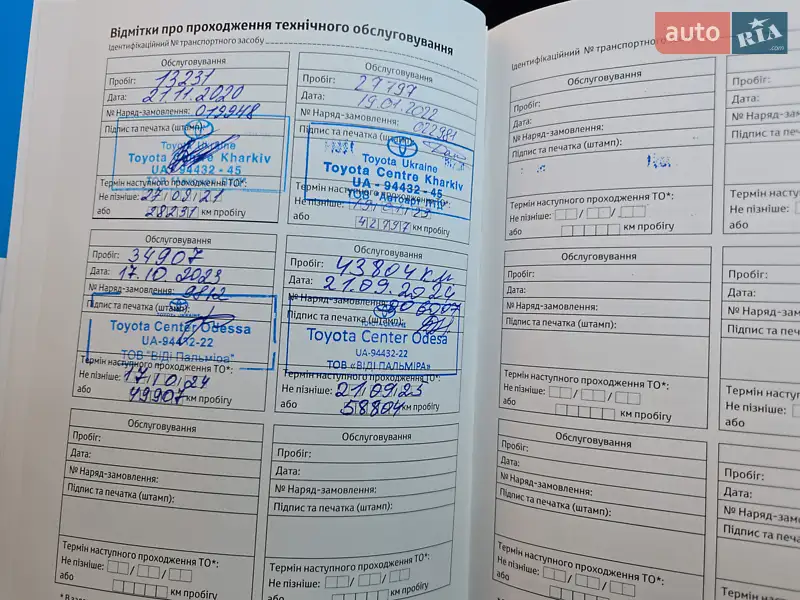 Відмітки про проходження технічного обслуговування
Ідентифікаційний № транспортного засобу
Обслуговування
Пробіг: 13231
Дата: 21.11.2020
№ Наряд-замовлення: 019948
Підпис та печатка (штамп):
Toyota Ukraine
Toyota Centre Kharkiv
UA-94432-45
Термін наступного проходження ТО*:
Не пізніше:
або 28231 км пробігу
Обслуговування
Пробіг: 27797
Дата: 19.01.2022
№ Наряд-замовлення: 022981
Підпис та печатка (штамп):
Toyota Ukraine
Toyota Centre Kharkiv
UA - 94432 - 45
ТОВ "Автоарт ЛТД"
Термін наступного проходження ТО*:
Не пізніше: 19 01 23
або 42797 км пробігу
Обслуговування
Пробіг: 34907
Дата: 17.10.2023
№ Наряд-замовлення: 9812
Підпис та печатка (штамп):
Toyota Center Odessa
UA-94432-22
ТОВ "ВІДІ Пальміра"
Термін наступного проходження ТО*:
Не пізніше: 17 10 24
або 49907 км пробігу
Обслуговування
Пробіг: 43804 км
Дата: 21.09.2024
№ Наряд-замовлення:
Підпис та печатка (штамп):
Toyota Center Odesa
UA-94432-22
ТОВ «ВІДІ ПАЛЬМІРА»
Термін наступного проходження ТО*:
Не пізніше: 21 09 25
або 58804 км пробігу
Обслуговування
Пробіг:
Дата:
№ Наряд-замовлення:
Підпис та печатка (штамп):
Термін наступного проходження ТО*:
Не пізніше: / /
або км пробігу
Обслуговування
Пробіг:
Дата:
№ Наряд-замовлення:
Підпис та печатка (штамп):
Термін наступного проходження ТО*:
Не пізніше: / /
або км пробігу
Ідентифікаційний № транспортного
Обслуговування
Пробіг:
Дата:
№ Наряд-замовлення:
Підпис та печатка (штамп):
Термін наступного проходження ТО*:
Не пізніше: / /
або км пробігу
Обслуговування
Пробіг:
Дата:
№ Наряд-замовлення:
Підпис та печатка (штамп):
Термін наступного проходження ТО*:
Не пізніше: / /
або км пробігу
Обслуговування
Пробіг:
Дата:
№ Наряд-замовлення:
Підпис та печатка (штамп):
Термін наступного проходження ТО*:
Не пізніше: / /
або км пробігу
Пробіг:
Дата:
Не пізніше:
або
Пробіг:
Дата:
Не пізніше:
або
Пробіг:
Дата:
auto RIA .com